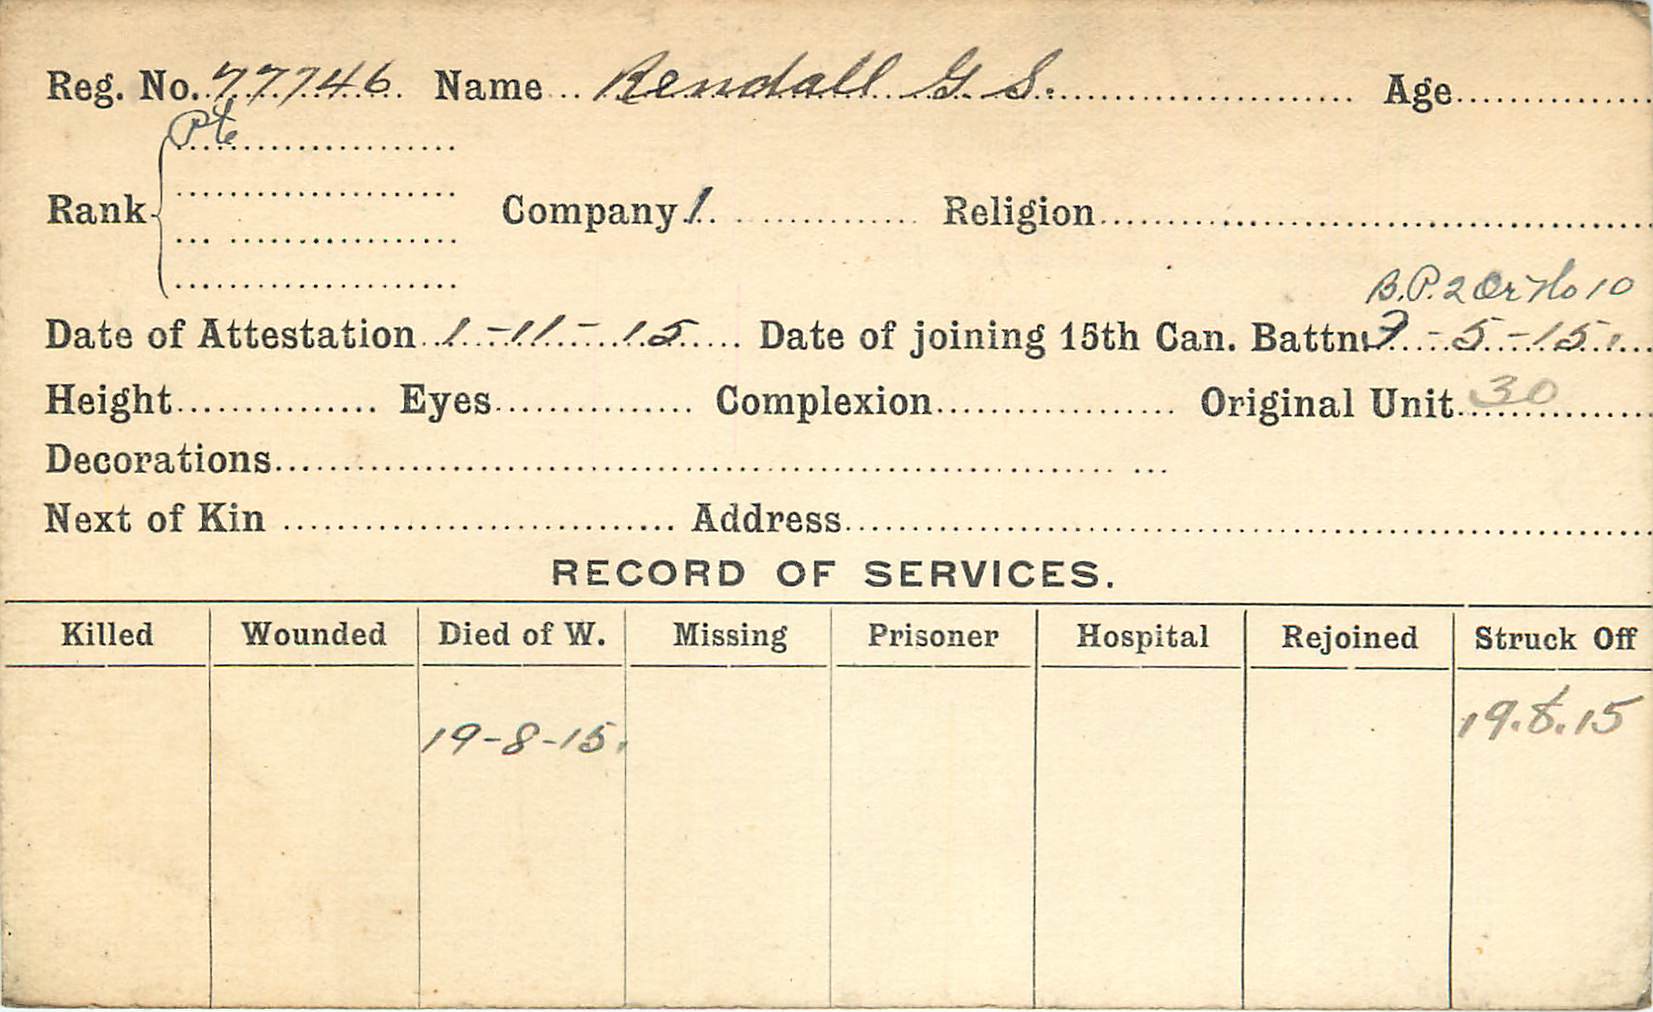 Reg. No. 77746 Name Rendall G. S. Age
Pte
Rank Company 1 Religion
B.P. 2 Or No 10
Date of Attestation 1-11-15 Date of joining 15th Can. Battn. -5-15.
Height Eyes Complexion Original Unit 30
Decorations
Next of Kin Address
RECORD OF SERVICES.
Killed Wounded Died of W. Missing Prisoner Hospital Rejoined Struck Off
19.8.15
19-8-15.